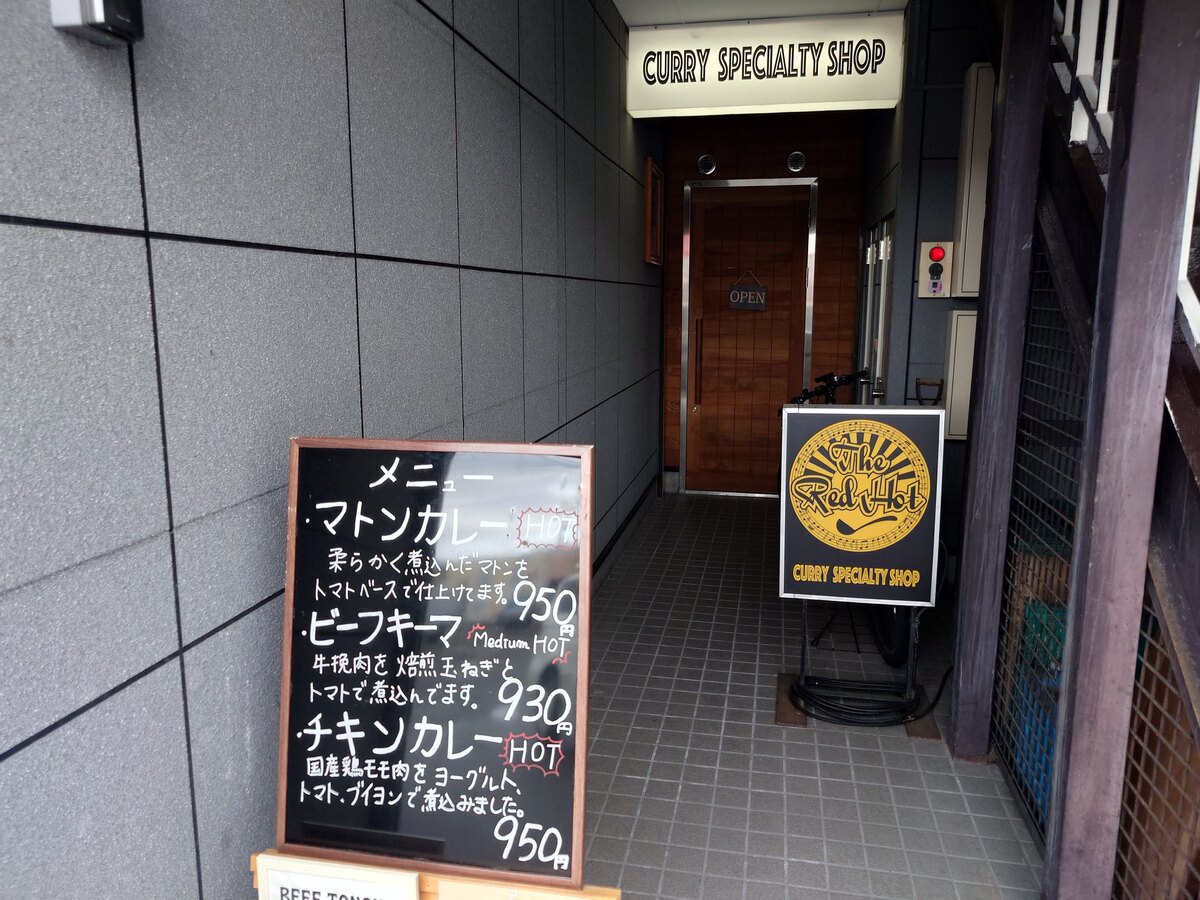 CURRY SPECIALTY SHOP
OPEN
The
Red Hot
CURRY SPECIALTY SHOP
メニュー
・マトンカレー HOT
柔らかく煮込んだマトンを
トマトベースで仕上げてます。950円
・ビーフキーマ Medium HOT
牛挽肉を焙煎玉ねぎと
トマトで煮込んでます。930円
・チキンカレー HOT
国産鶏モモ肉をヨーグルト、
トマト、ブイヨンで煮込みました。
950円
BEEF